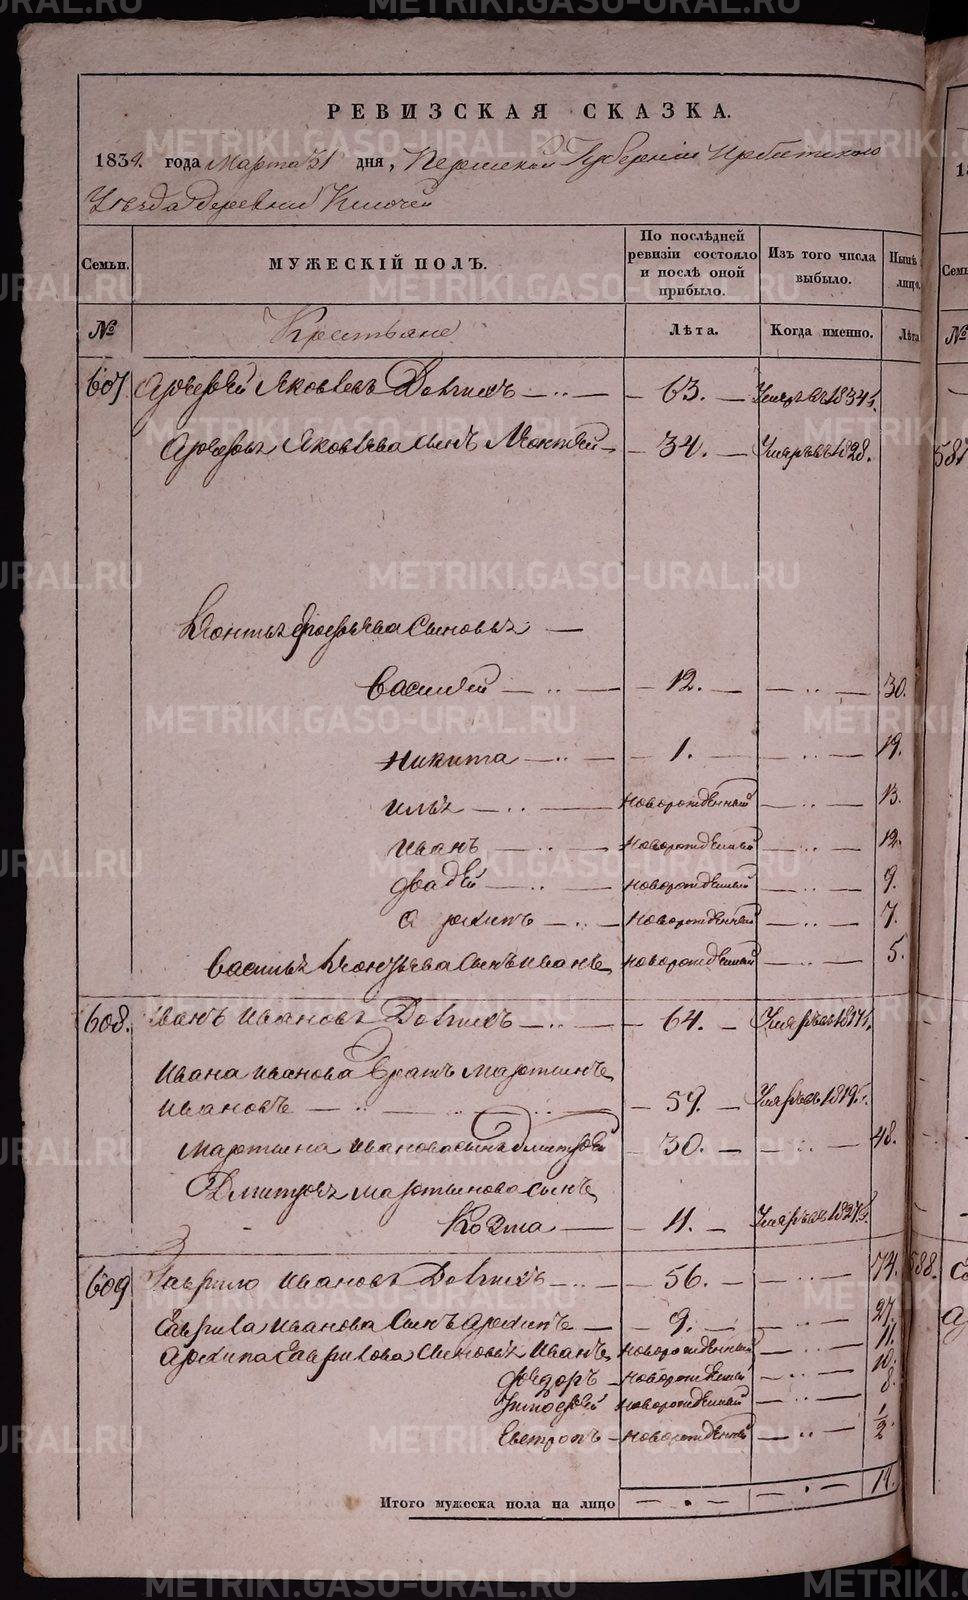 РЕВИЗСКАЯ СКАЗКА.
1834. года Марта 31 дня, Пермской Губернiи Ирбитскаго
Уѣзда деревни Ключей
Семьи.
МУЖЕСКIЙ ПОЛЪ.
По послѣдней ревизiи состояло и послѣ оной прибыло.
Изъ того числа выбыло.
Нынѣ лицо.
№
Крестьяне
Лѣта.
Когда именно.
Лѣта
607 Яковлевъ Долгихъ — 63. — Умеръ въ 1834 г.
Яковлева сынъ — 34. — Умеръ въ 1828.
сыновья —
Василей — 12. — 30.
Никита — 1. — 19.
Илья — новорожденный — 13.
Иванъ — новорожденный — 12.
Фадѣй — новорожденный — 9.
Архипъ — новорожденный — 7.
Василья Леонтьева сынъ Иванъ новорожденный — 5.
608. Иванъ Ивановъ Долгихъ — 64. — Умеръ въ 1817 г.
Ивана Иванова братъ Мартынъ
Ивановъ — 59. — Умеръ въ 1819 г.
Мартына Иванова сынъ Дмитрей 30. — 48.
Дмитрея Мартынова сынъ
Козма — 11. — Умеръ въ 1827 г.
609 Гаврило Ивановъ Долгихъ — 56. — 74.
Гаврила Иванова сынъ Архипъ — 9. — 27.
Архипа Гаврилова сыновья Иванъ новорожденный — 11.
Федоръ — новорожденный — 10.
Тимофей новорожденный — 8.
Евтропъ — новорожденный — 1/2
Итого мужеска пола на лицо — 14.
587
588.
METRIKI.GASO-URAL.RU